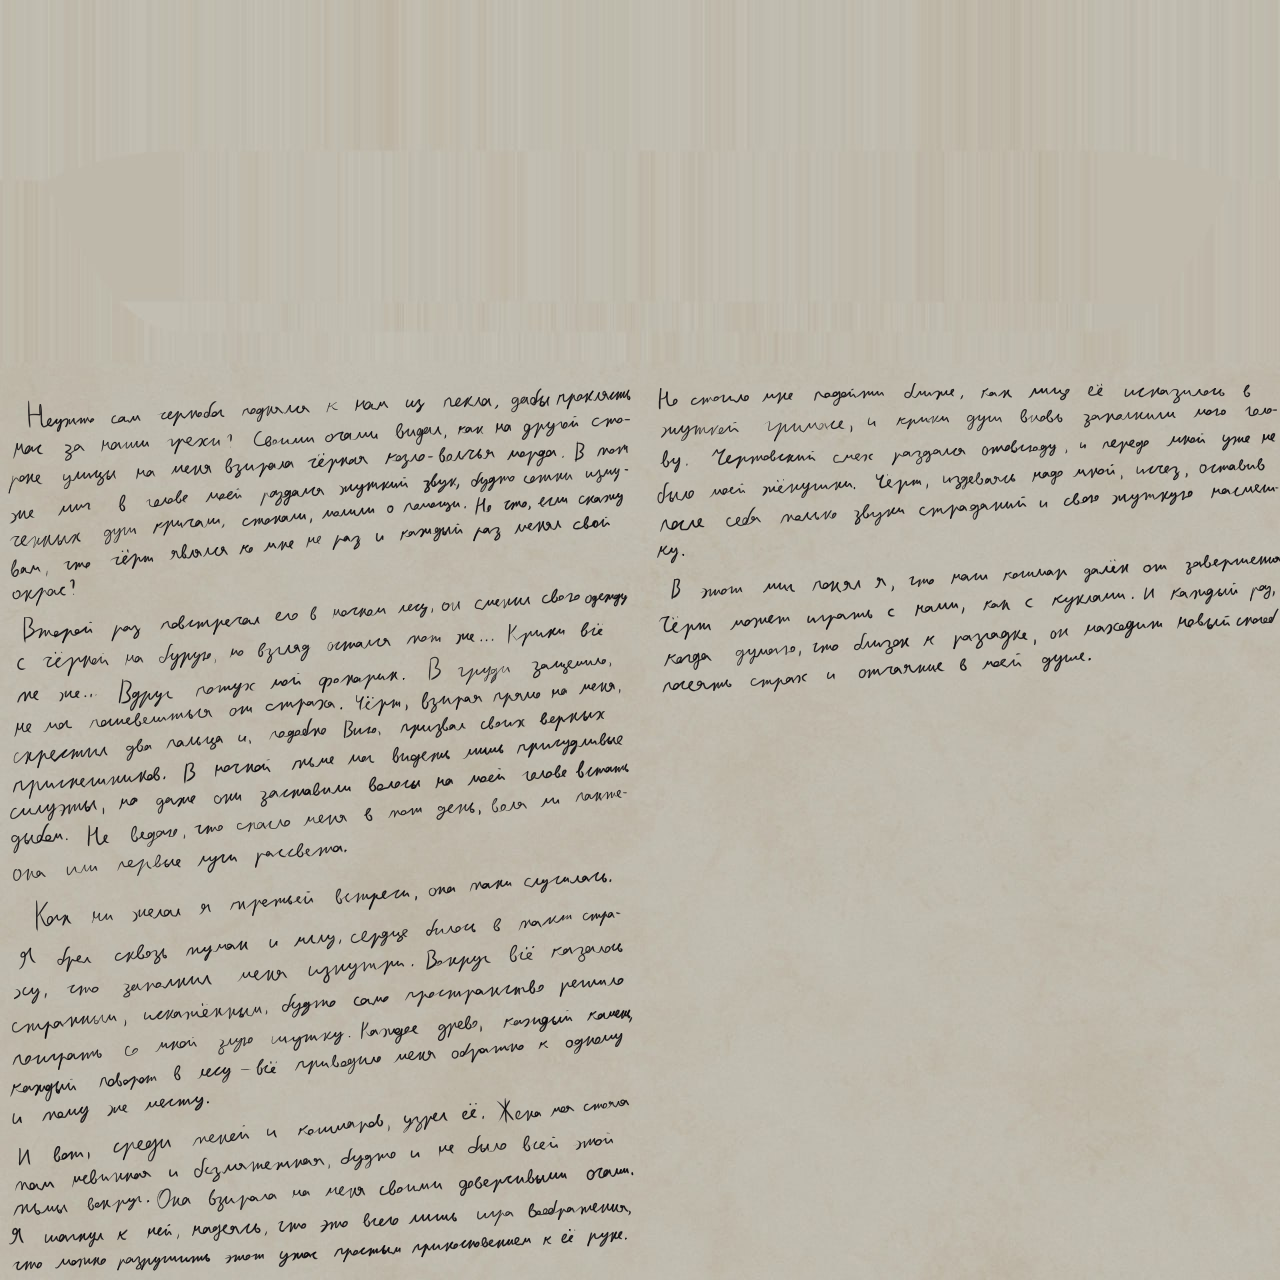 Неужто сам чернобог поднялся к нам из пекла, дабы проклясть
нас за наши грехи? Своими очами видал, как на другой сто-
роне улицы на меня взирала чёрная козло-волчья морда. В тот
же миг в голове моей раздался жуткий звук, будто сотни изму-
ченных душ кричали, стонали, молили о помощи. Но что, если скажу
вам, что чёрт являлся ко мне не раз и каждый раз менял свой
окрас?
Второй раз повстречал его в ночном лесу, он сменил свою одежду
с чёрной на бурую, но взгляд остался тот же... Крики всё
те же.. Вдруг потух мой фонарик. В груди защемило,
не мог пошевелиться от страха. Чёрт, взирая прямо на меня,
скрестил два пальца и, подобно Вию, призвал своих верных
приспешников. В ночной тьме мог видеть лишь причудливые
силуэты, но даже они заставили волосы на моей голове встать
дыбом. Не ведаю, что спасло меня в тот день, воля ли панте-
она или первые лучи рассвета.
Коли ни желал я третьей встречи, она таки случилась.
Я брел сквозь туман и мглу, сердце билось в такт стра-
ху, что заполнил меня изнутри. Вокруг всё казалось
странным, искажённым, будто само пространство решило
поиграть со мной злую шутку. Каждое древо, каждый камень,
каждый поворот в лесу – всё приводило меня обратно к одному
и тому же месту.
И вот, среди теней и кошмаров, узрел её. Жена моя стояла
там невинная и безмятежная, будто и не было всей этой
тьмы вокруг. Она взирала на меня своими доверчивыми очами.
Я шагнул к ней, надеясь, что это всего лишь игра воображения,
что можно разрушить этот ужас простым прикосновением к её руке.
Но стоило мне подойти ближе, как лицо её исказилось в
жуткой гримасе, и крики душ вновь заполнили мою голо-
ву. Чертовский смех раздался отовсюду, и передо мной уже не
было моей жёнушки. Чёрт, издеваясь надо мной, исчез, оставив
после себя только звуки страданий и свою жуткую насмеш-
ку.
В этот миг понял я, что наш кошмар далёк от завершения
Чёрт может играть с нами, как с куклами. И каждый раз,
когда думаю, что близок к разгадке, он находит новый способ
посеять страх и отчаяние в моей душе.